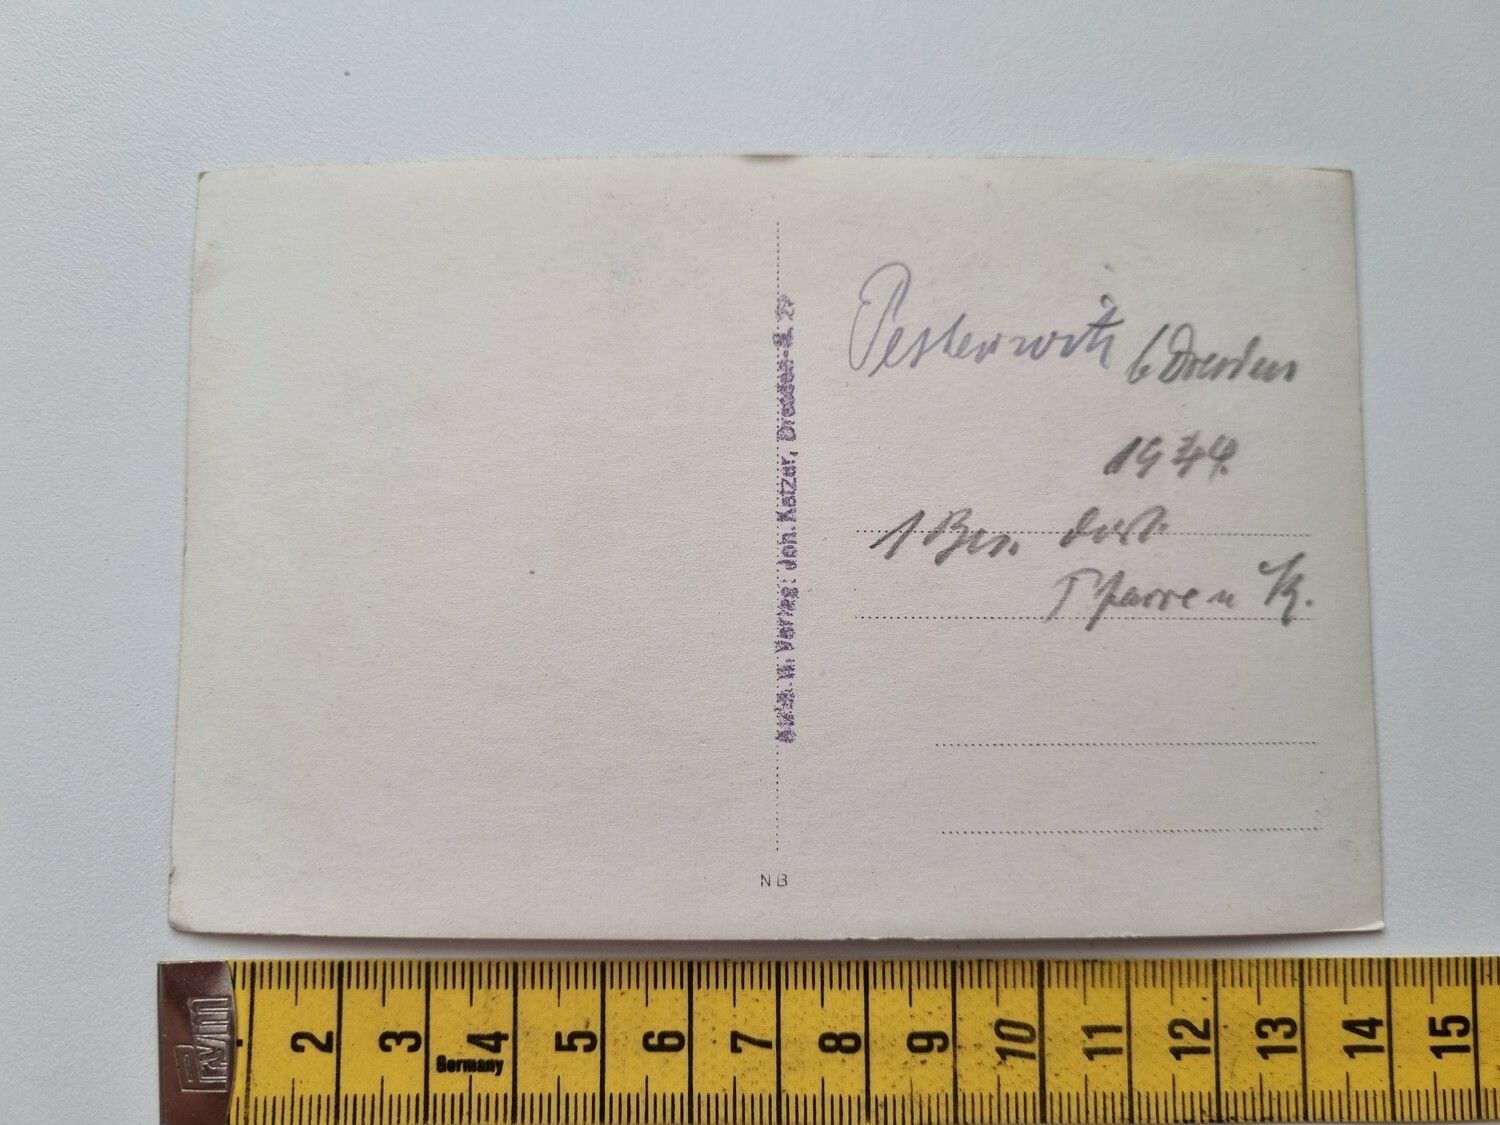 Pesterwitz b Dresden
1944.
1 Bes. dort.
Pfarre u K.
Aufn. u. Verlag: Joh. Katzer, Dresden-A. 29
NB
Prym
2 3 4 5 6 7 8 9 10 11 12 13 14 15
Germany